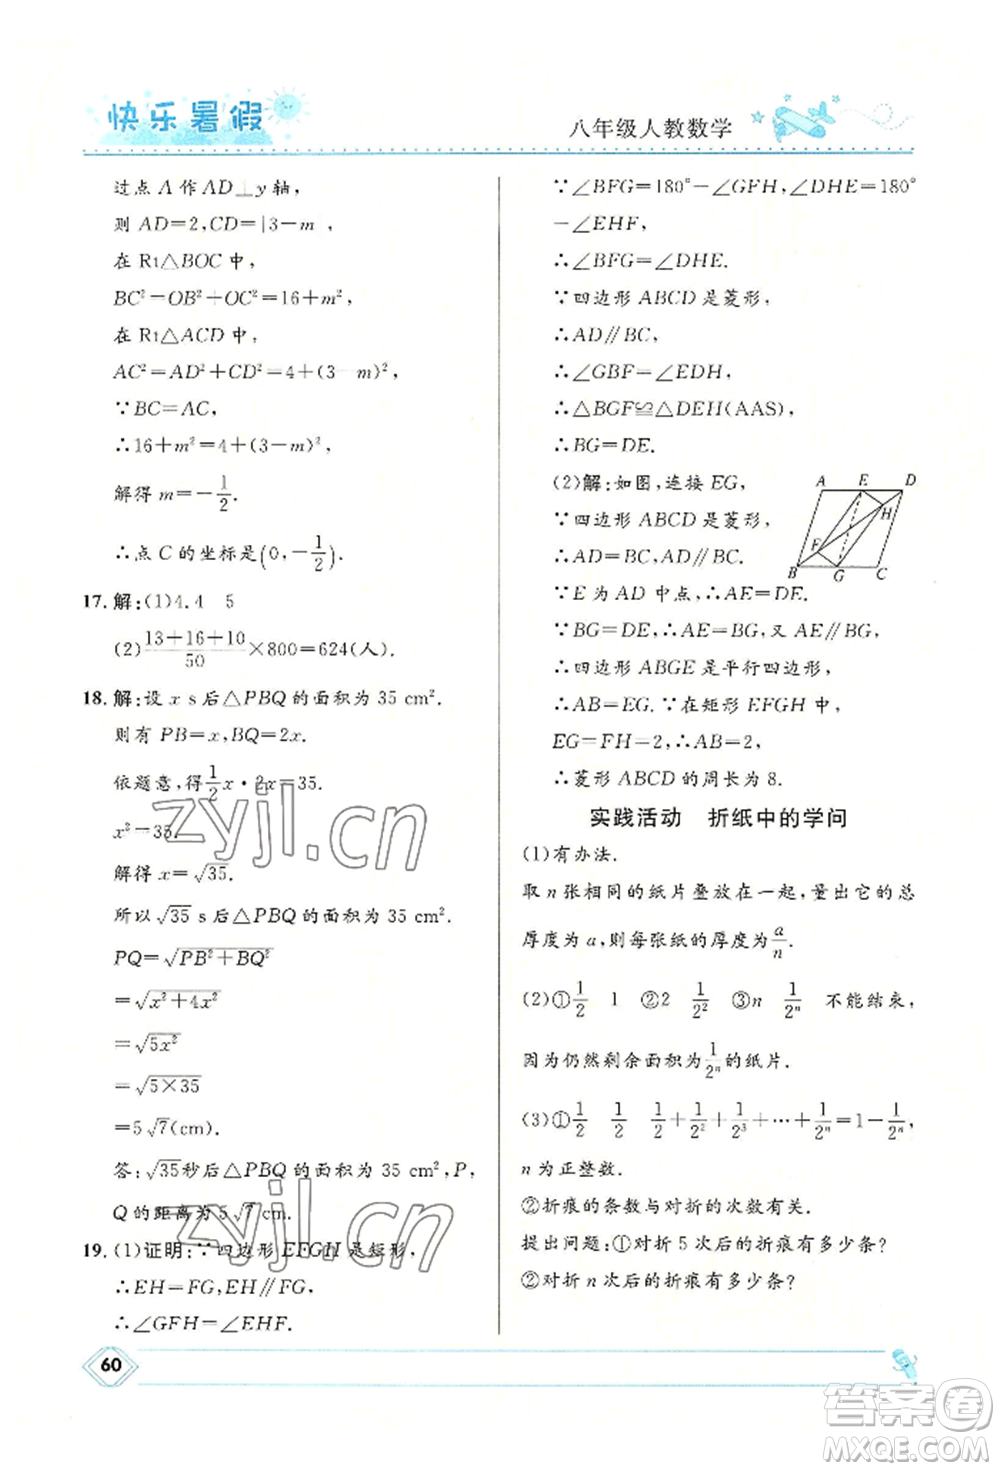 快乐暑假
八年级人教数学
过点 A 作 AD⊥y 轴，
则 AD=2,CD=|3-m|，
在 Rt△BOC 中，
BC²=OB²+OC²=16+m²，
在 Rt△ACD 中，
AC²=AD²+CD²=4+(3-m)²，
∵BC=AC，
∴16+m²=4+(3-m)²，
解得 m=-1/2.
∴点 C 的坐标是(0,-1/2).
17.解:(1)4.4 5
(2)(13+16+10)/50×800=624(人).
18.解:设 x s 后△PBQ 的面积为 35 cm².
则有 PB=x,BQ=2x.
依题意,得1/2x·2x=35.
x²=35.
解得 x=√35.
所以√35 s 后△PBQ 的面积为 35 cm².
PQ=√(PB²+BQ²)
=√(x²+4x²)
=√(5x²)
=√(5×35)
=5√7(cm).
答:√35秒后△PBQ 的面积为 35 cm²,P,
Q 的距离为 5√7 cm.
19.(1)证明:∵四边形 EFGH 是矩形,
∴EH=FG,EH∥FG,
∴∠GFH=∠EHF.
∵∠BFG=180°-∠GFH,∠DHE=180°
-∠EHF,
∴∠BFG=∠DHE.
∵四边形 ABCD 是菱形,
∴AD∥BC,
∴∠GBF=∠EDH,
∴△BGF≌△DEH(AAS),
∴BG=DE.
(2)解:如图,连接 EG,
∵四边形 ABCD 是菱形,
∴AD=BC,AD∥BC.
∵E 为 AD 中点,∴AE=DE.
∵BG=DE,∴AE=BG,又 AE∥BG,
∴四边形 ABGE 是平行四边形,
∴AB=EG.∵在矩形 EFGH 中,
EG=FH=2,∴AB=2,
∴菱形 ABCD 的周长为 8.
A E D
H
F
B G C
实践活动 折纸中的学问
(1)有办法.
取 n 张相同的纸片叠放在一起,量出它的总
厚度为 a,则每张纸的厚度为a/n.
(2)①1/2 1 ②2 1/2² ③n 1/2ⁿ 不能结束,
因为仍然剩余面积为1/2ⁿ的纸片.
(3)①1/2 1/2 1/2+1/2²+1/2³+…+1/2ⁿ=1-1/2ⁿ,
n 为正整数.
②折痕的条数与对折的次数有关.
提出问题:①对折 5 次后的折痕有多少条?
②对折 n 次后的折痕有多少条?
60
zyjl.cn
zyjl.cn
答案圈
MXQE.COM